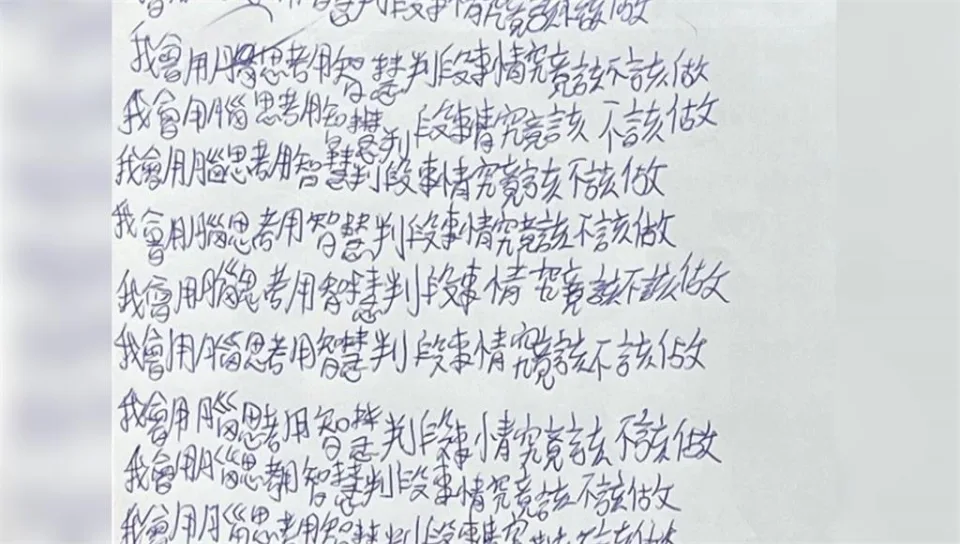 會用 思考用智慧判段事情究竟該不該做
我會用腦思考用智慧判段事情究竟該不該做
我會用腦思考用智慧判段事情究竟該不該做
我會用腦思考用智慧判段事情究竟該不該做
我會用腦思考用智慧判段事情究竟該不該做
我會用腦思考用智慧判段事情究竟該不該做
我會用腦思考用智慧判段事情究竟該不該做
我會用腦思考用智慧判段事情究竟該不該做
我會用腦思考用智慧判段事情究竟該不該做
我會用腦思考用智慧判段事情究